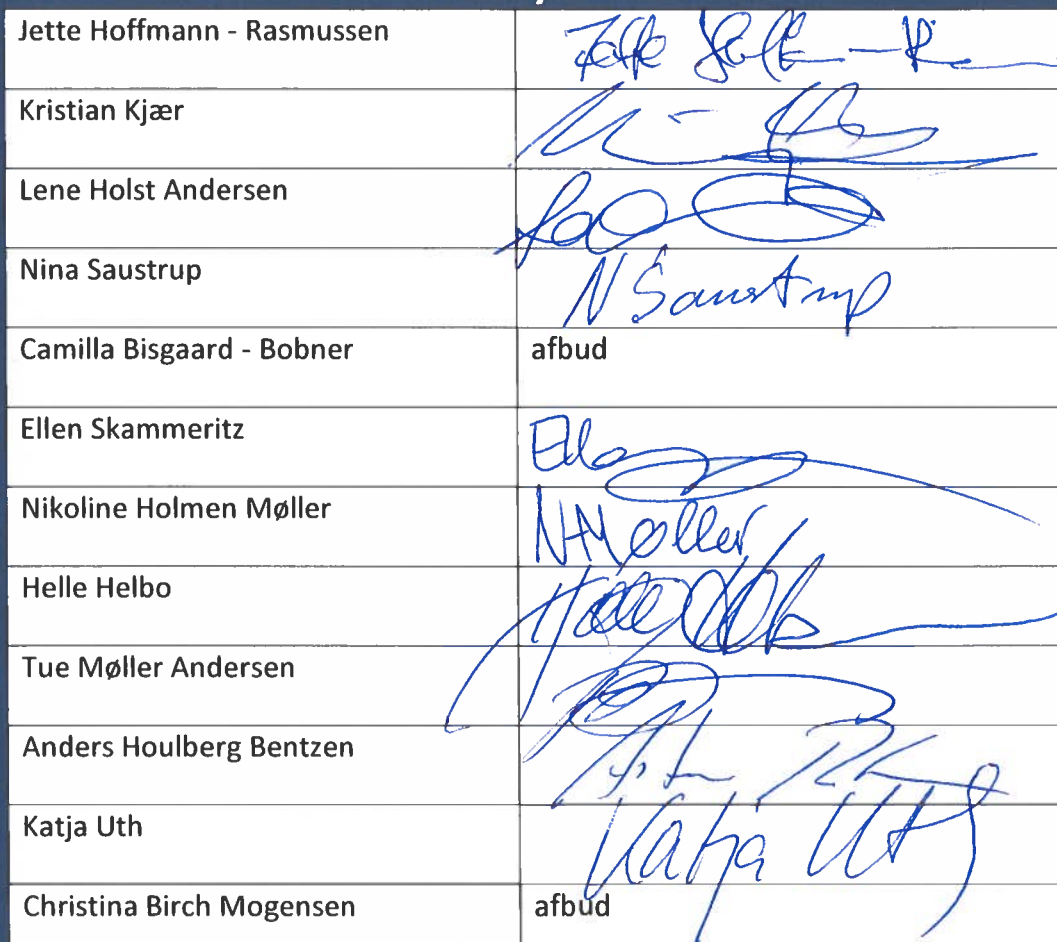 Jette Hoffmann - Rasmussen
Kristian Kjær
Lene Holst Andersen
Nina Saustrup N Saustrup
Camilla Bisgaard - Bobner afbud
Ellen Skammeritz
Nikoline Holmen Møller NHMøller
Helle Helbo
Tue Møller Andersen
Anders Houlberg Bentzen
Katja Uth Katja Uth
Christina Birch Mogensen afbud